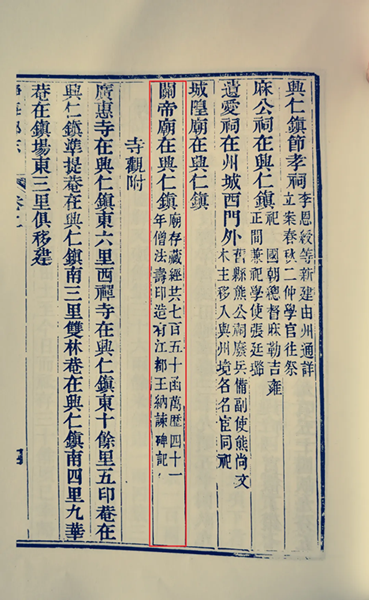 興仁鎮節孝祠 李恩綬等新建由州通詳
立案春秋二仲學官往祭
麻公祠在興仁鎮 祀 國朝總督麻勒吉雍
正間兼祀學使張廷璐
遺愛祠在州城西門外 舊縣熊公祠廢兵備副使熊尚文
木主移入與州境各名宦同祀
城隍廟在興仁鎮
關帝廟在興仁鎮 廟存藏經共七百五十函萬歷四十一
年僧法壽印造有江都王納諫碑記
寺觀附
廣惠寺在興仁鎮東六里西禪寺在興仁鎮東十餘里五印菴在
興仁鎮準提菴在興仁鎮南三里雙林菴在興仁鎮南四里九華
菴在鎮場東三里俱移建